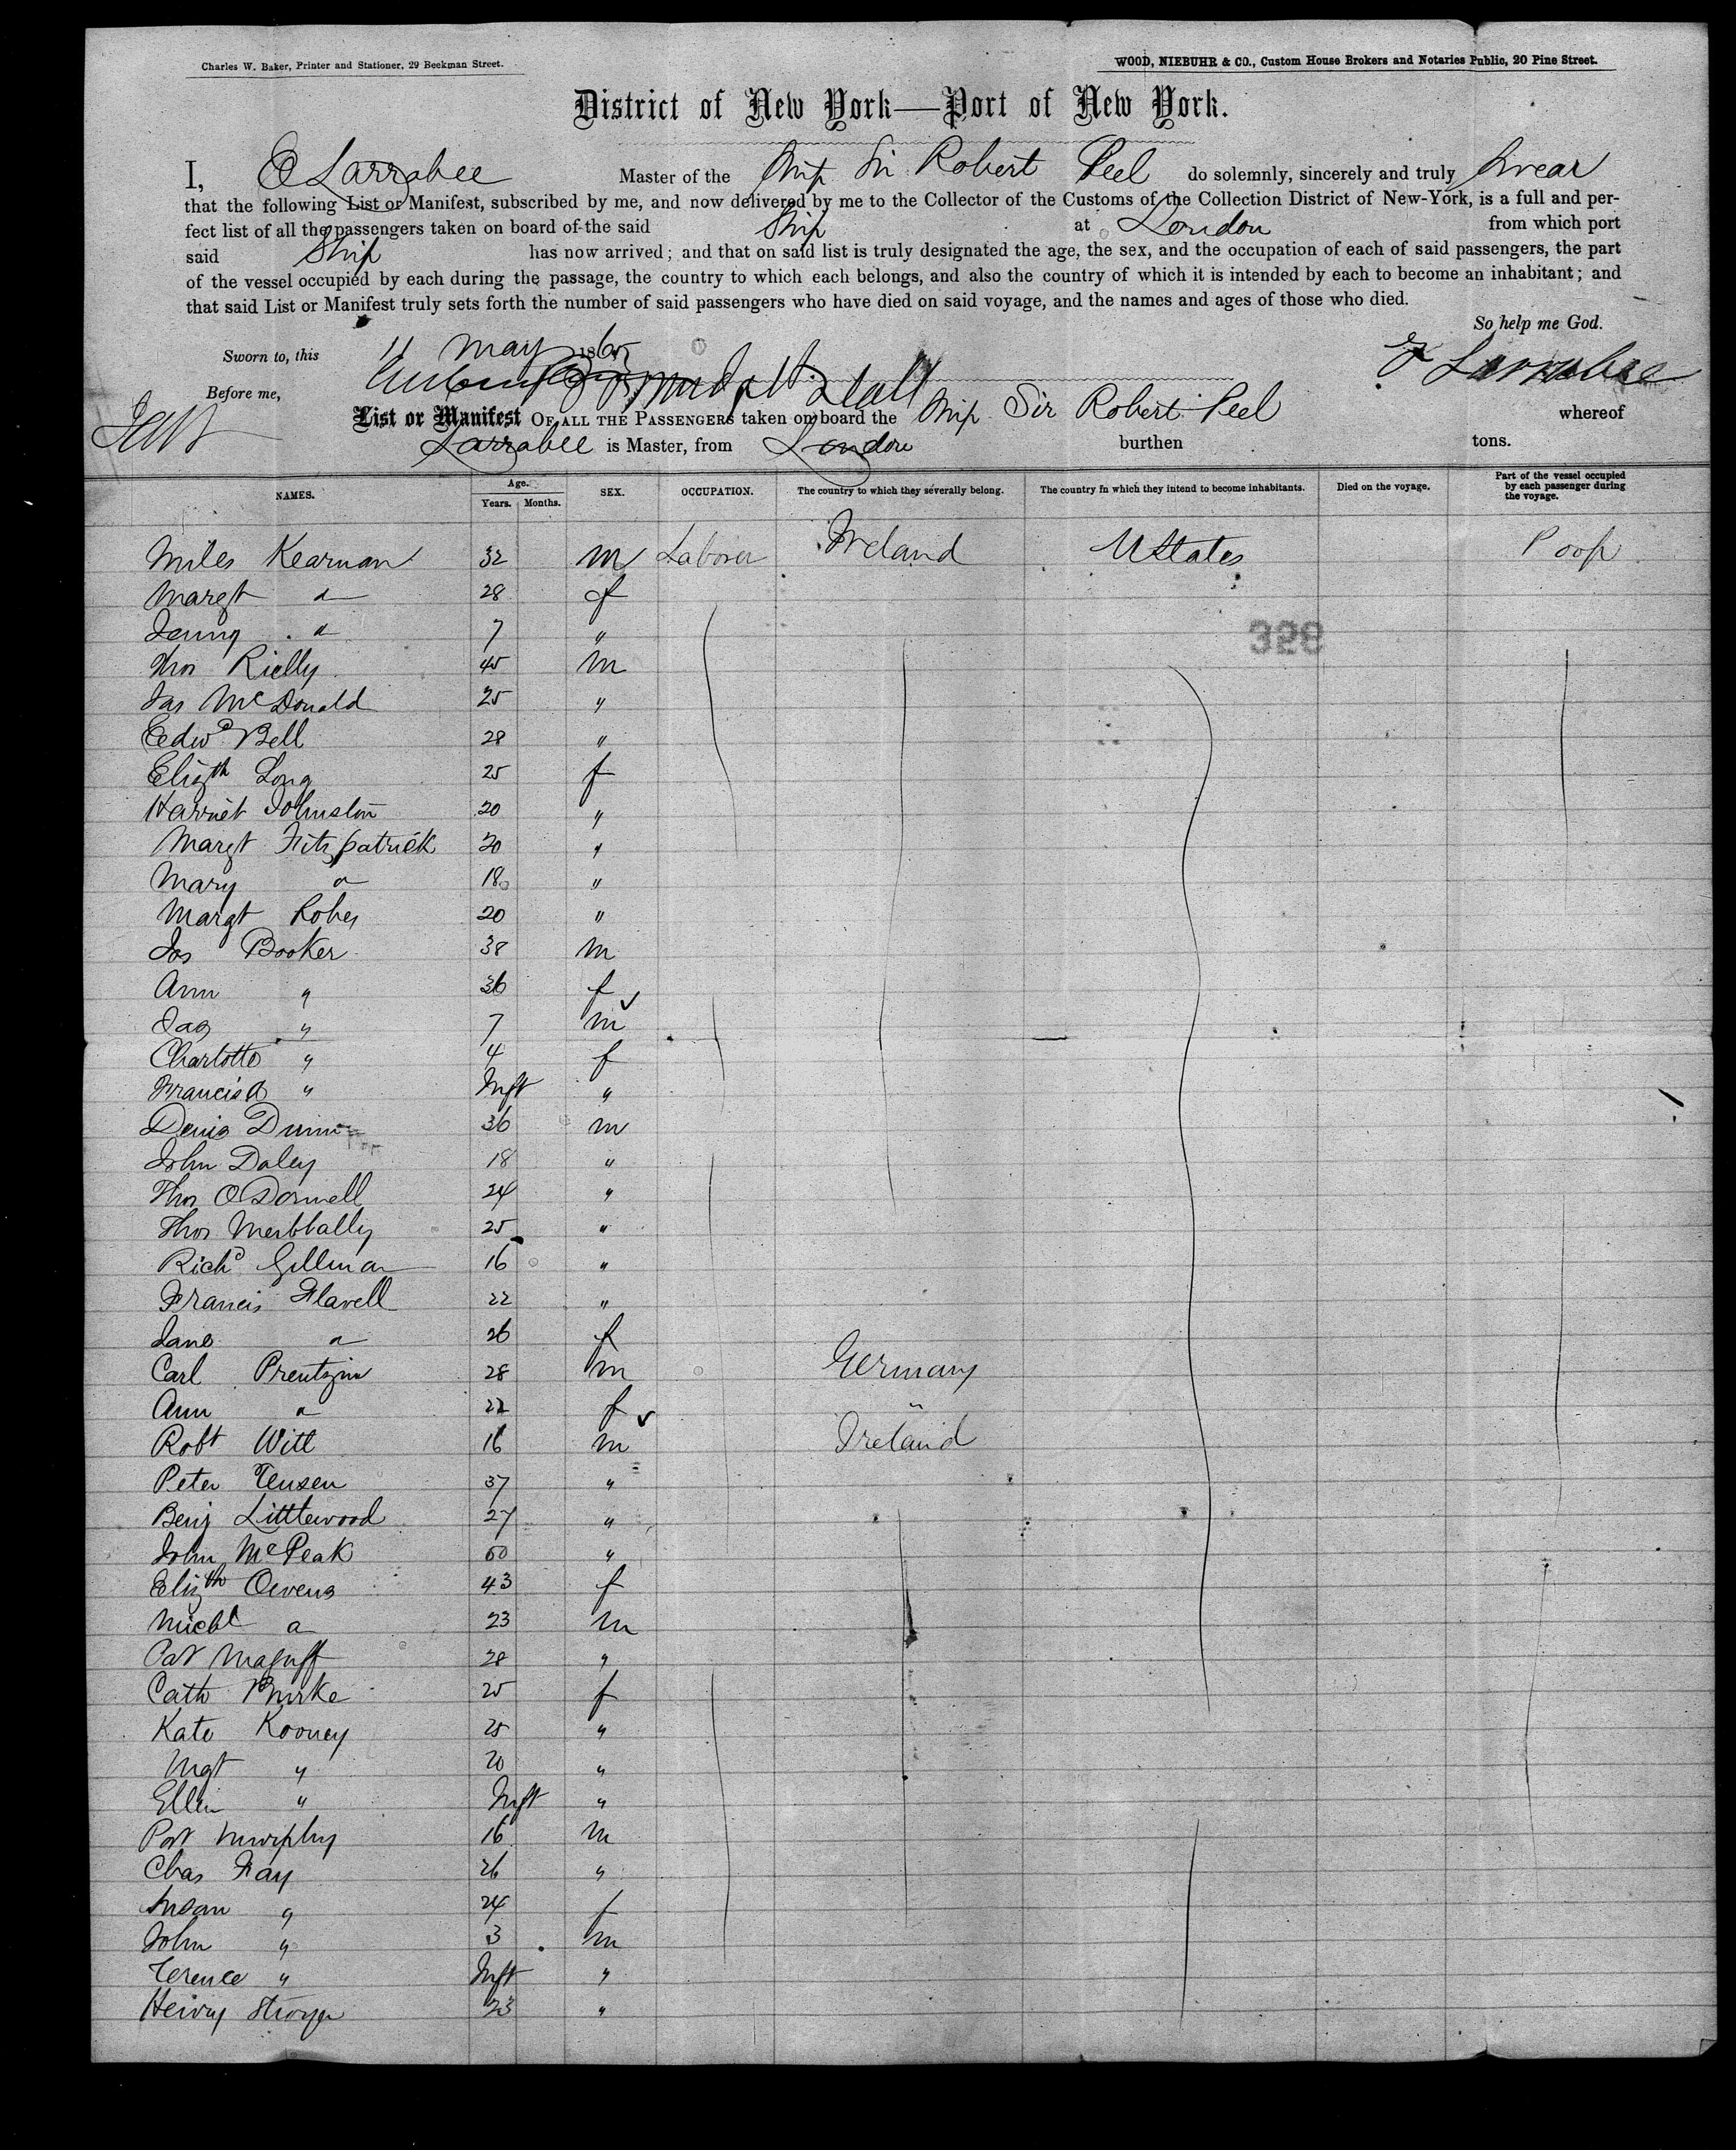 Charles W. Baker, Printer and Stationer, 29 Beekman Street.
WOOD, NIEBUHR & CO., Custom House Brokers and Notaries Public, 20 Pine Street.
District of New York—Port of New York.
I, E Larrabee Master of the Ship Sir Robert Peel do solemnly, sincerely and truly Swear
that the following List or Manifest, subscribed by me, and now delivered by me to the Collector of the Customs of the Collection District of New-York, is a full and per-
fect list of all the passengers taken on board of the said Ship at London from which port
said Ship has now arrived; and that on said list is truly designated the age, the sex, and the occupation of each of said passengers, the part
of the vessel occupied by each during the passage, the country to which each belongs, and also the country of which it is intended by each to become an inhabitant; and
that said List or Manifest truly sets forth the number of said passengers who have died on said voyage, and the names and ages of those who died.
So help me God.
Sworn to, this 11 May 1865
E Larrabee
Before me,
List or Manifest OF ALL THE PASSENGERS taken on board the Ship Sir Robert Peel whereof
Larrabee is Master, from London burthen tons.
NAMES. Age. Years. Months. SEX. OCCUPATION. The country to which they severally belong. The country in which they intend to become inhabitants. Died on the voyage. Part of the vessel occupied by each passenger during the voyage.
Miles Kearnan 32 m Laborer Ireland U States Poop
Margt " 28 f
328
Jenny " 7 "
Thos Rielly 45 m
Jas McDonald 25 "
Edwd Bell 28 "
Elizth Long 25 f
Harriet Johnston 20 "
Margt Fitzpatrick 20 "
Mary " 18 "
Margt 20 "
Jos Booker 38 m
Ann " 36 f
Jas " 7 m
Charlotte " 4 f
Francis A " Inft "
Denis Dunn 36 m
John Daley 18 "
Thos O Donnell 24 "
Thos 25 "
Richd Gillman 16 "
Francis Flavell 22 "
Jane " 26 f
Carl 28 m Germany
Ann " 22 f "
Robt Witt 16 m Ireland
Peter Jensen 37 "
Benj Littlewood 27 "
John McPeak 60 "
Elizth Owens 43 f
Michl " 23 m
Pat 28 "
Cath Burke 25 f
Kate Rooney 25 "
Mgt " 20 "
Ellen " Inft "
Pat Murphy 16 m
Chas Fay 26 "
Susan " 24 f
John " 3 m
Terence " Inft "
Henry 23 "